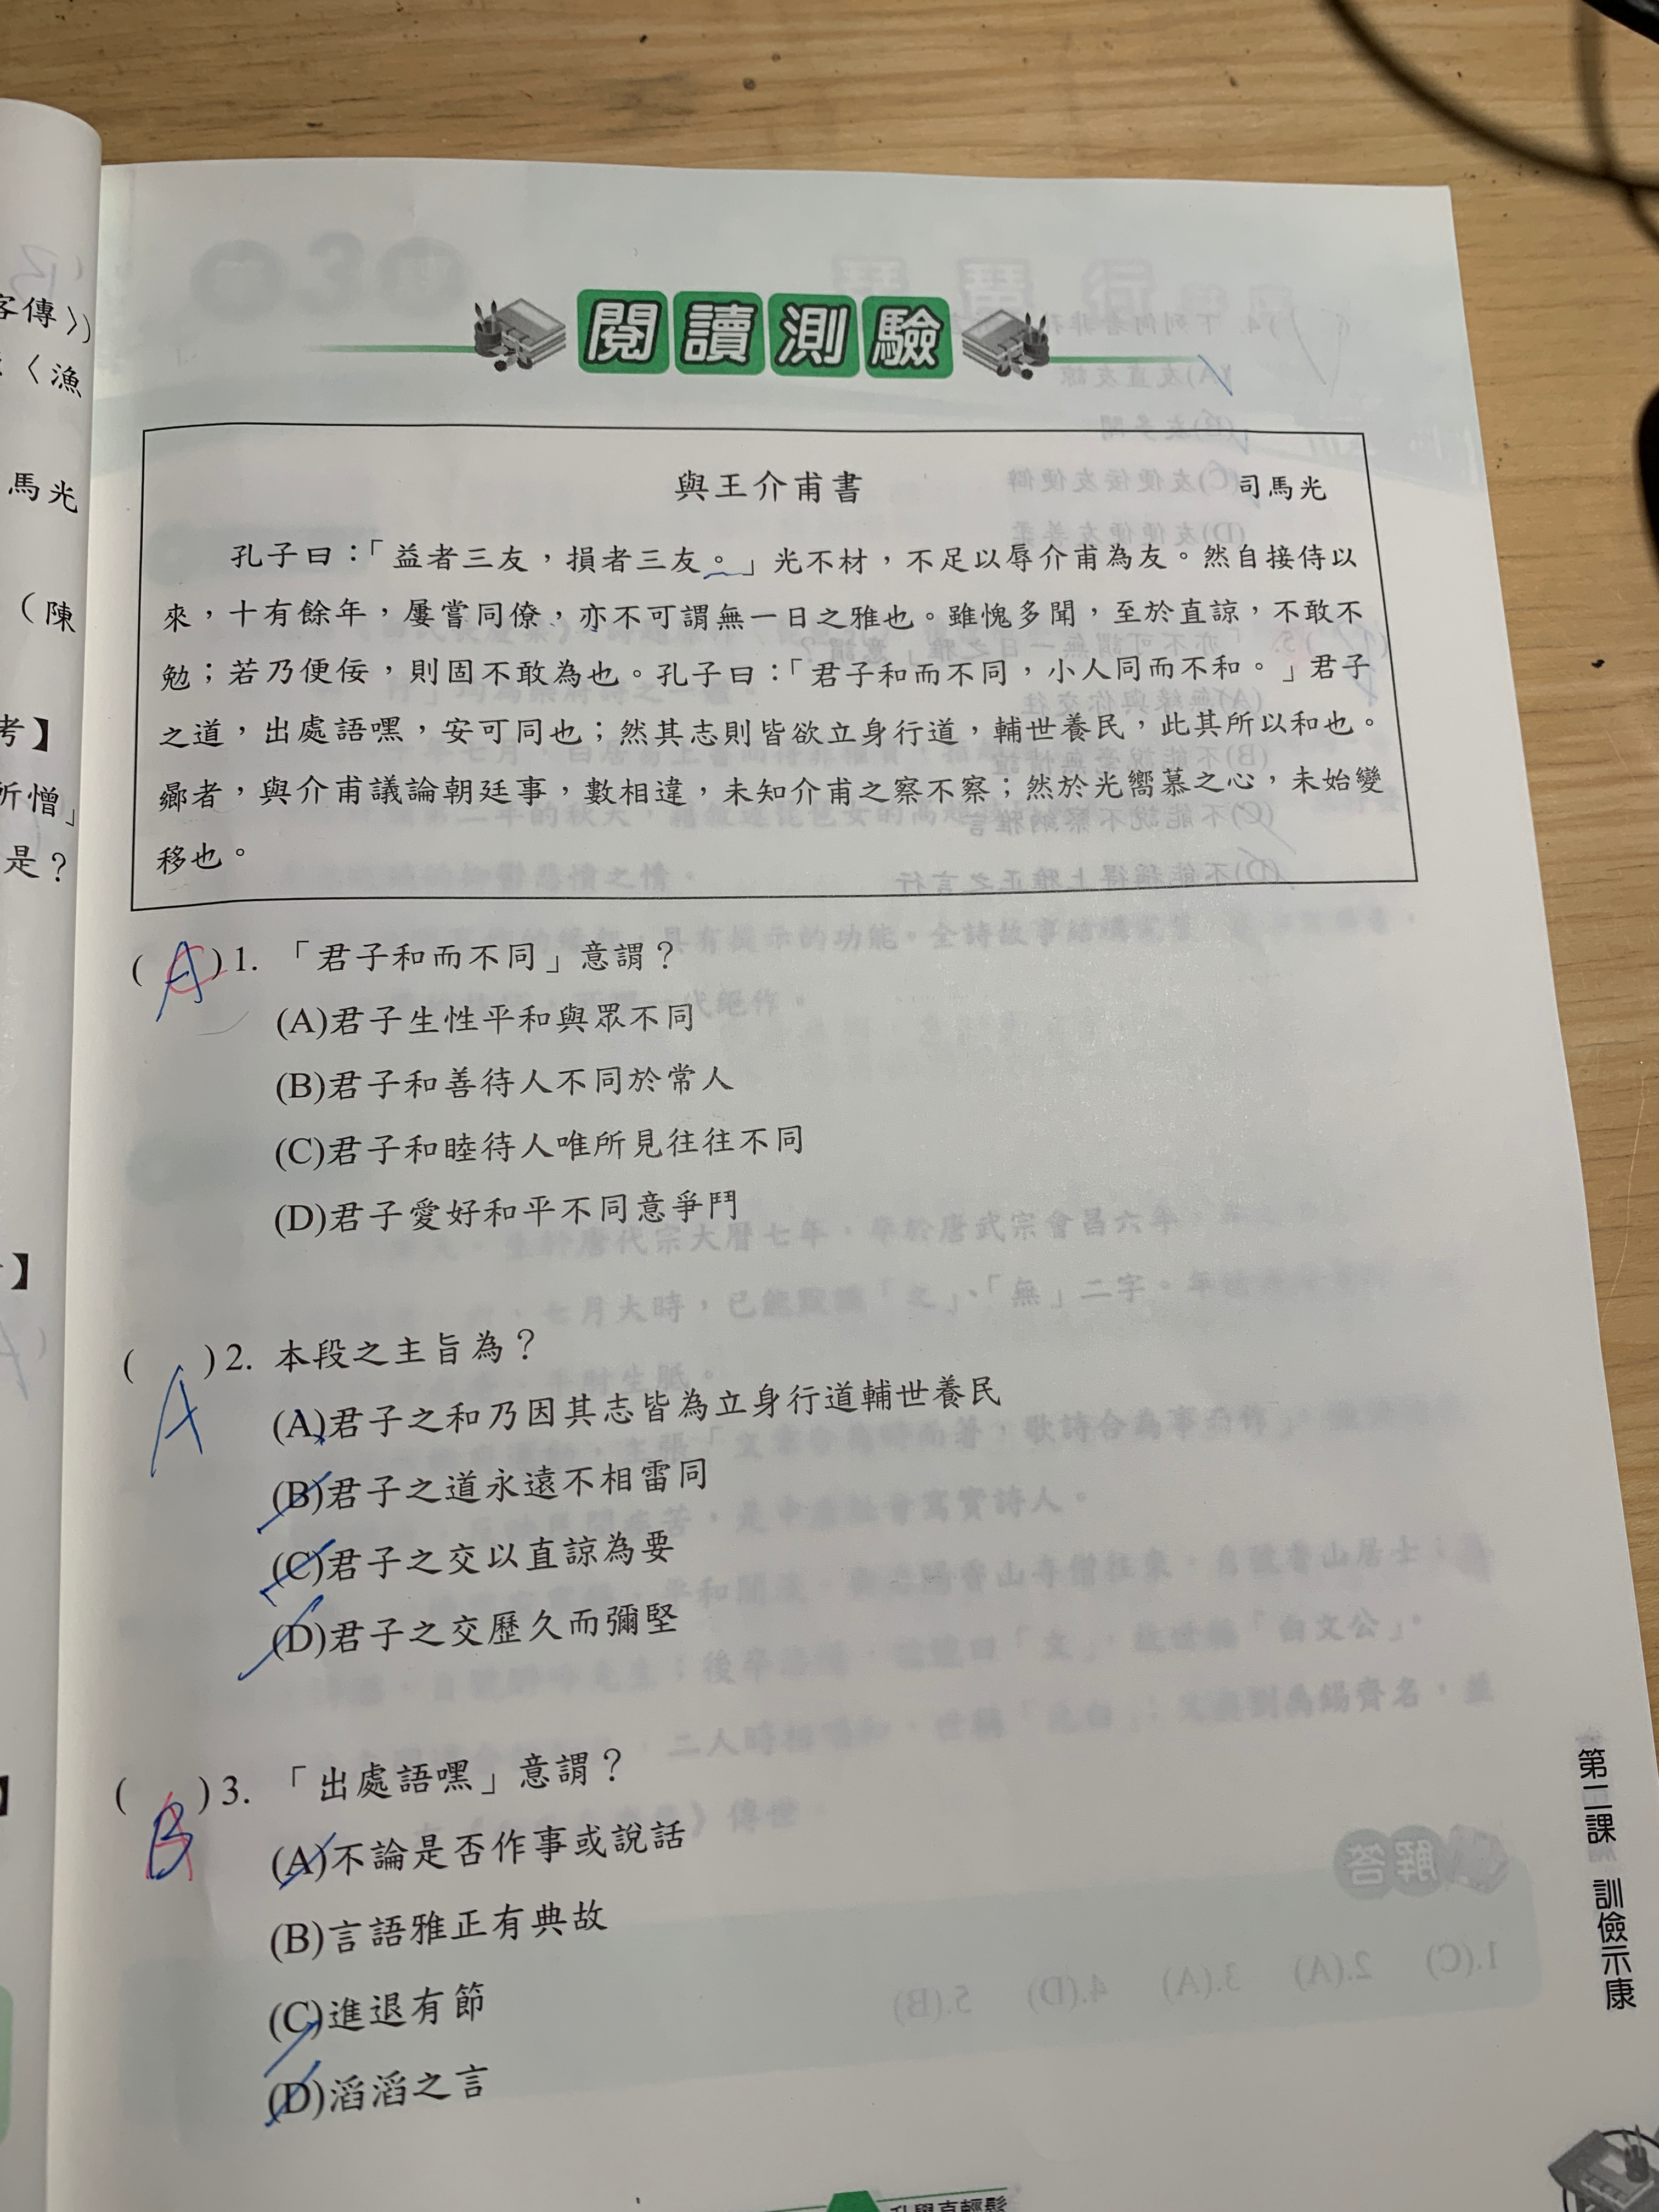 閱讀測驗
與王介甫書 司馬光
孔子曰：「益者三友，損者三友。」光不材，不足以辱介甫為友。然自接侍以
來，十有餘年，屢嘗同僚，亦不可謂無一日之雅也。雖愧多聞，至於直諒，不敢不
勉；若乃便佞，則固不敢為也。孔子曰：「君子和而不同，小人同而不和。」君子
之道，出處語嘿，安可同也；然其志則皆欲立身行道，輔世養民，此其所以和也。
曏者，與介甫議論朝廷事，數相違，未知介甫之察不察；然於光嚮慕之心，未始變
移也。
(A)1. 「君子和而不同」意謂？
(A)君子生性平和與眾不同
(B)君子和善待人不同於常人
(C)君子和睦待人唯所見往往不同
(D)君子愛好和平不同意爭鬥
(A)2. 本段之主旨為？
(A)君子之和乃因其志皆為立身行道輔世養民
(B)君子之道永遠不相雷同
(C)君子之交以直諒為要
(D)君子之交歷久而彌堅
(B)3. 「出處語嘿」意謂？
(A)不論是否作事或說話
(B)言語雅正有典故
(C)進退有節
(D)滔滔之言
第二課 訓儉示康
客傳〉)
〈漁
馬光
（陳
考】
所憎」
是？